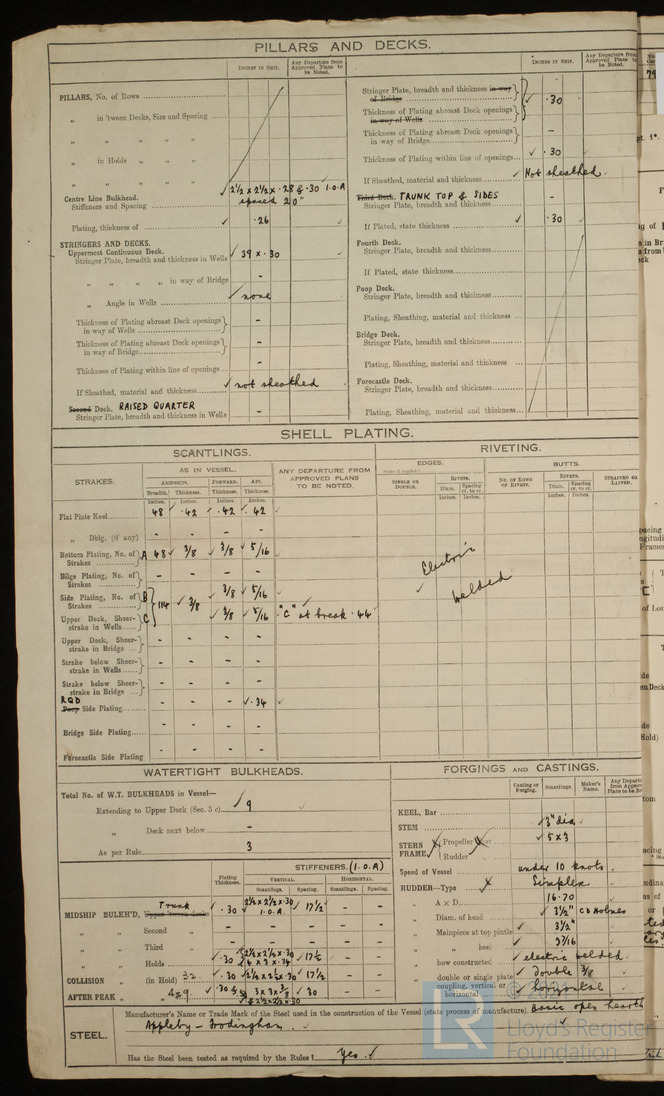 PILLARS AND DECKS.
INCHES IN SHIP.
Any Departure from Approved Plans to be Noted.
PILLARS, No. of Rows
„ in 'tween Decks, Size and Spacing
„ „ „ „
„ in Holds „ „
„ „ „ „
Centre Line Bulkhead.
Stiffeners and Spacing ✓ 2½ x 2½ x .28 & .30 I.O.A spaced 20"
Plating, thickness of ✓ .26 ✓
STRINGERS AND DECKS.
Uppermost Continuous Deck.
Stringer Plate, breadth and thickness in Wells ✓ 39 x .30 ✓
„ „ „ „ in way of Bridge -
„ Angle in Wells ✓ none
Thickness of Plating abreast Deck openings in way of Wells -
Thickness of Plating abreast Deck openings in way of Bridge -
Thickness of Plating within line of openings -
If Sheathed, material and thickness ✓ not sheathed
Second Deck. RAISED QUARTER
Stringer Plate, breadth and thickness in Wells -
INCHES IN SHIP.
Any Departure from Approved Plans to be Noted.
Stringer Plate, breadth and thickness in way of Bridge ✓ .30
Thickness of Plating abreast Deck openings in way of Wells
Thickness of Plating abreast Deck openings in way of Bridge -
Thickness of Plating within line of openings ✓ .30
If Sheathed, material and thickness ✓ Not sheathed.
Third Deck. TRUNK TOP & SIDES
Stringer Plate, breadth and thickness -
If Plated, state thickness ✓ .30 ✓
Fourth Deck.
Stringer Plate, breadth and thickness
If Plated, state thickness
Poop Deck.
Stringer Plate, breadth and thickness
Plating, Sheathing, material and thickness
Bridge Deck.
Stringer Plate, breadth and thickness
Plating, Sheathing, material and thickness
Forecastle Deck.
Stringer Plate, breadth and thickness
Plating, Sheathing, material and thickness
SHELL PLATING.
SCANTLINGS.
RIVETING.
STRAKES.
AS IN VESSEL.
ANY DEPARTURE FROM APPROVED PLANS TO BE NOTED.
EDGES.
BUTTS.
AMIDSHIPS. FORWARD. AFT.
Breadth. Thickness. Thickness. Thickness.
Inches. Inches. Inches. Inches.
SINGLE OR DOUBLE.
RIVETS.
Diam. Spacing cr. to cr.
Inches. Inches.
NO. OF ROWS OF RIVETS.
RIVETS.
Diam. Spacing cr. to cr.
Inches. Inches.
STRAPPED OR LAPPED.
Flat Plate Keel 48 ✓ .42 ✓ .42 ✓ .42 ✓
„ Dblg. (if any) - - - -
Bottom Plating, No. of Strakes A 48 ✓ 3/8 ✓ 3/8 ✓ 5/16 ✓
Bilge Plating, No. of Strakes - - - -
Side Plating, No. of Strakes B 114 ✓ 3/8 3/8 ✓ 5/16 ✓
Upper Deck, Sheerstrake in Wells C ✓ 3/8 ✓ 5/16 ✓ "C" at break .44
Electric welded
Upper Deck, Sheerstrake in Bridge - - - -
Strake below Sheerstrake in Wells - - - -
Strake below Sheerstrake in Bridge - - - -
RQD
Poop Side Plating - - - ✓ .34 ✓
Bridge Side Plating - - - -
Forecastle Side Plating - - - -
WATERTIGHT BULKHEADS.
Total No. of W.T. BULKHEADS in Vessel—
Extending to Upper Deck (Sec. 3 c) ✓ 9 ✓
„ Deck next below -
As per Rule 3
STIFFENERS. (I.O.A)
Plating Thickness.
VERTICAL. HORIZONTAL.
Scantlings. Spacing. Scantlings. Spacing.
MIDSHIP BULKH'D, Trunk Upper 'tween decks ✓ .30 2½ x 2½ x .30 I.O.A. ✓ 17½ - -
„ „ Second „ - - - - -
„ „ Third „ - - - - -
„ „ Holds ✓ .30 2½ x 2½ x .30 4 x 3 x .34 ✓ 17½ - -
COLLISION „ (in Hold) 32 ✓ .30 2½ x 2½ x .30 ✓ 17½ - -
AFTER PEAK „ „ 4 & 9 3 x 3 x 3/8 & 2½ x 2½ x .30 ✓ 30 - -
FORGINGS AND CASTINGS.
Casting or Forging. Scantlings. Maker's Name. Any Departure from Approved Plans to be Noted.
KEEL, Bar
STEM ✓ 3" dia.
STERN FRAME Propeller ✓ 5 x 3
Rudder
Speed of Vessel under 10 knots
RUDDER—Type Simplex
„ A × D 16.70
„ Diam. of head ✓ 3½" C D Holmes
„ Mainpiece at top pintle ✓ 3½"
„ „ heel ✓ 3 7/16
„ how constructed ✓ electric welded.
„ double or single plate ✓ double 3/8
„ coupling, vertical or horizontal ✓ horizontal
STEEL.
Manufacturer's Name or Trade Mark of the Steel used in the construction of the Vessel (state process of manufacture) Basic open hearth
Appleby - Frodingham. ✓
Has the Steel been tested as required by the Rules? Yes. ✓
LR
Lloyd's Register
Foundation